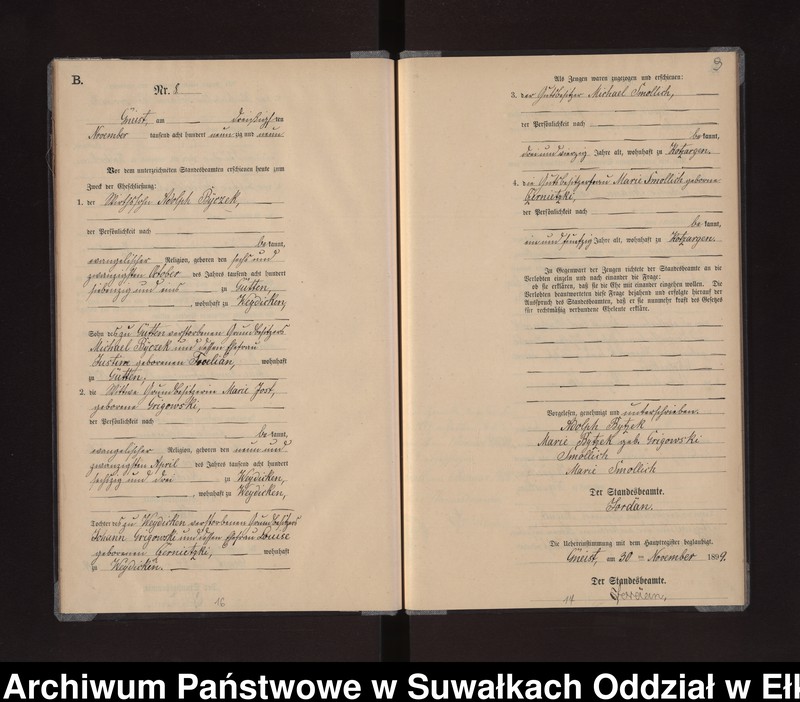 B.
Nr. 8
Gneist, am dreißigsten
November tausend acht hundert neunzig und neun
Vor dem unterzeichneten Standesbeamten erschienen heute zum
Zweck der Eheschließung:
1. der Wirthssohn Adolph Byczek,
der Persönlichkeit nach
bekannt,
evangelischer Religion, geboren den sechs und
zwanzigsten October des Jahres tausend acht hundert
siebenzig und eins zu Gutten,
, wohnhaft zu Weydicken,
Sohn des zu Gutten verstorbenen Grundbesitzers
Michael Byczek und dessen Ehefrau
Justine geborenen wohnhaft
zu Gutten,
2. die Wittwe Grundbesitzerin Marie Jost,
geborene Grigowski,
der Persönlichkeit nach
bekannt,
evangelischer Religion, geboren den neun und
zwanzigsten April des Jahres tausend acht hundert
sechszig und drei zu Weydicken,
, wohnhaft zu Weydicken,
Tochter des zu Weydicken verstorbenen Grundbesitzers
Johann Grigowski und dessen Ehefrau Louise
geborenen Czernietzki, wohnhaft
zu Weydicken.
16
3
Als Zeugen waren zugezogen und erschienen:
3. der Gutsbesitzer Michael Smollich,
der Persönlichkeit nach
bekannt,
drei und vierzig Jahre alt, wohnhaft zu Kotzargen.
4. die Gutsbesitzerfrau Marie Smollich geborene
Czernietzki,
der Persönlichkeit nach
bekannt,
ein und fünfzig Jahre alt, wohnhaft zu Kotzargen.
In Gegenwart der Zeugen richtete der Standesbeamte an die
Verlobten einzeln und nach einander die Frage:
ob sie erklären, daß sie die Ehe mit einander eingehen wollen. Die
Verlobten beantworteten diese Frage bejahend und erfolgte hierauf der
Ausspruch des Standesbeamten, daß er sie nunmehr kraft des Gesetzes
für rechtmäßig verbundene Eheleute erkläre.
Vorgelesen, genehmigt und unterschrieben.
Adolph Bytzek
Marie Bytzek geb. Grigowski
Smollich
Marie Smollich
Der Standesbeamte.
Jordan.
Die Uebereinstimmung mit dem Hauptregister beglaubigt.
Gneist, am 30 ten November 1899.
Der Standesbeamte.
Jordan.
14
Archiwum Państwowe w Suwałkach Oddział w Ełk